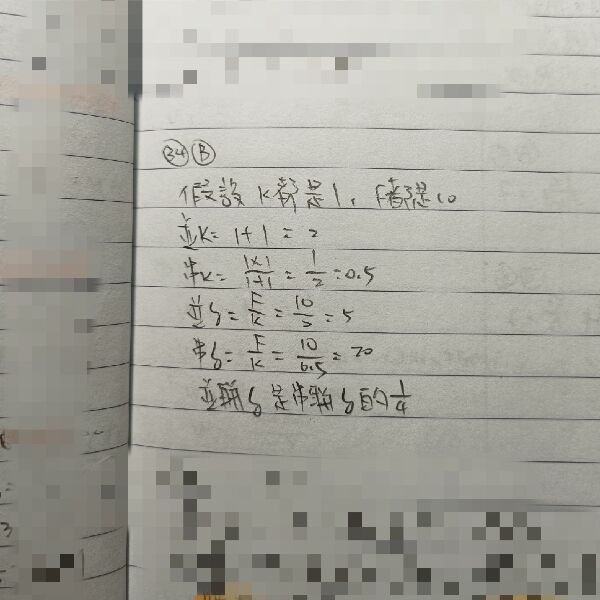 34 B
假設 K都是1，F都是10
並K = 1+1 = 2
串K = 1×1/1+1 = 1/2 = 0.5
並δ = F/K = 10/2 = 5
串δ = F/K = 10/0.5 = 20
並聯δ是串聯δ的1/4